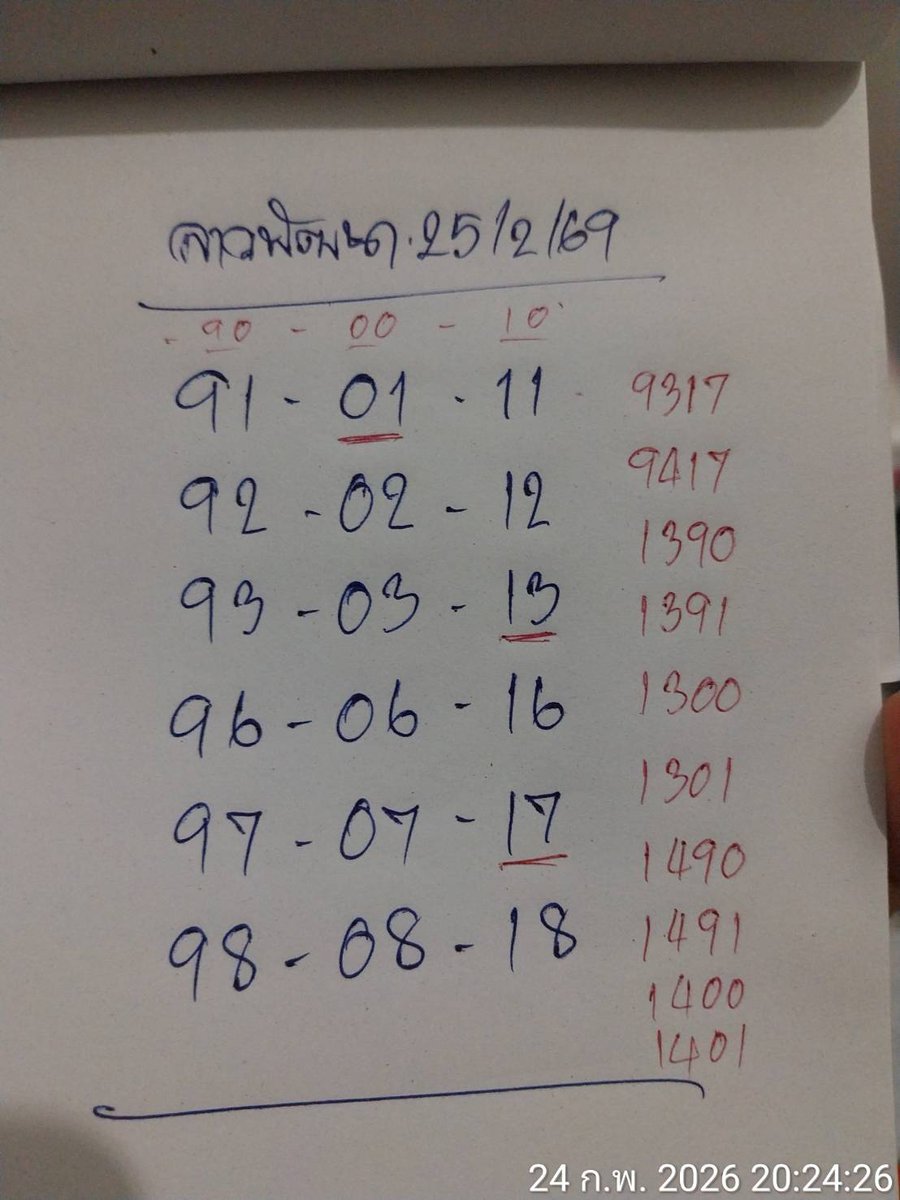 ลาวพัฒนา. 25/2/69
90 - 00 - 10
91 - 01 - 11 9317
9417
92 - 02 - 12
1390
93 - 03 - 13 1391
96 - 06 - 16 1300
1301
97 - 07 - 17
1490
98 - 08 - 18 1491
1400
1401
24 ก.พ. 2026 20:24:26